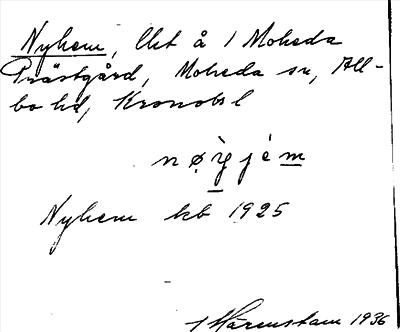 Nyhem, lht å 1 Moheda
Prästgård, Moheda sn, All-
bo hd, Kronobs l
nø̀yjèm
Nyhem kb 1925
Härenstam 1936